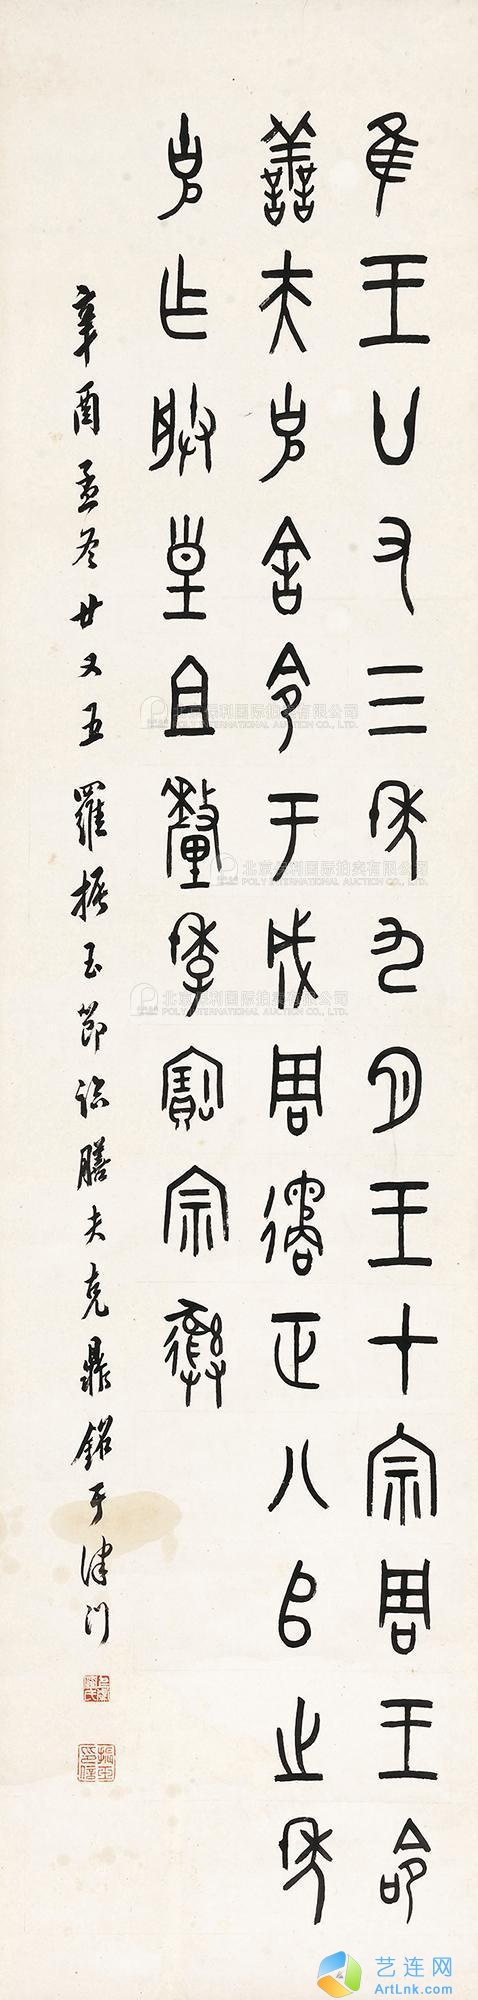 隹王廿又三年九月王才宗周王命
善夫克舍令于成周遹正八𠂤之年
克乍朕皇且釐季寶宗彝
辛酉孟冬廿又五羅振玉節臨膳夫克鼎銘于津门
北京保利国际拍卖有限公司
POLY INTERNATIONAL AUCTION CO., LTD.
北京保利国际拍卖有限公司
POLY INTERNATIONAL AUCTION CO., LTD.
北京保利国际拍卖有限公司
POLY INTERNATIONAL AUCTION CO., LTD.
艺连网
ArtLnk.com